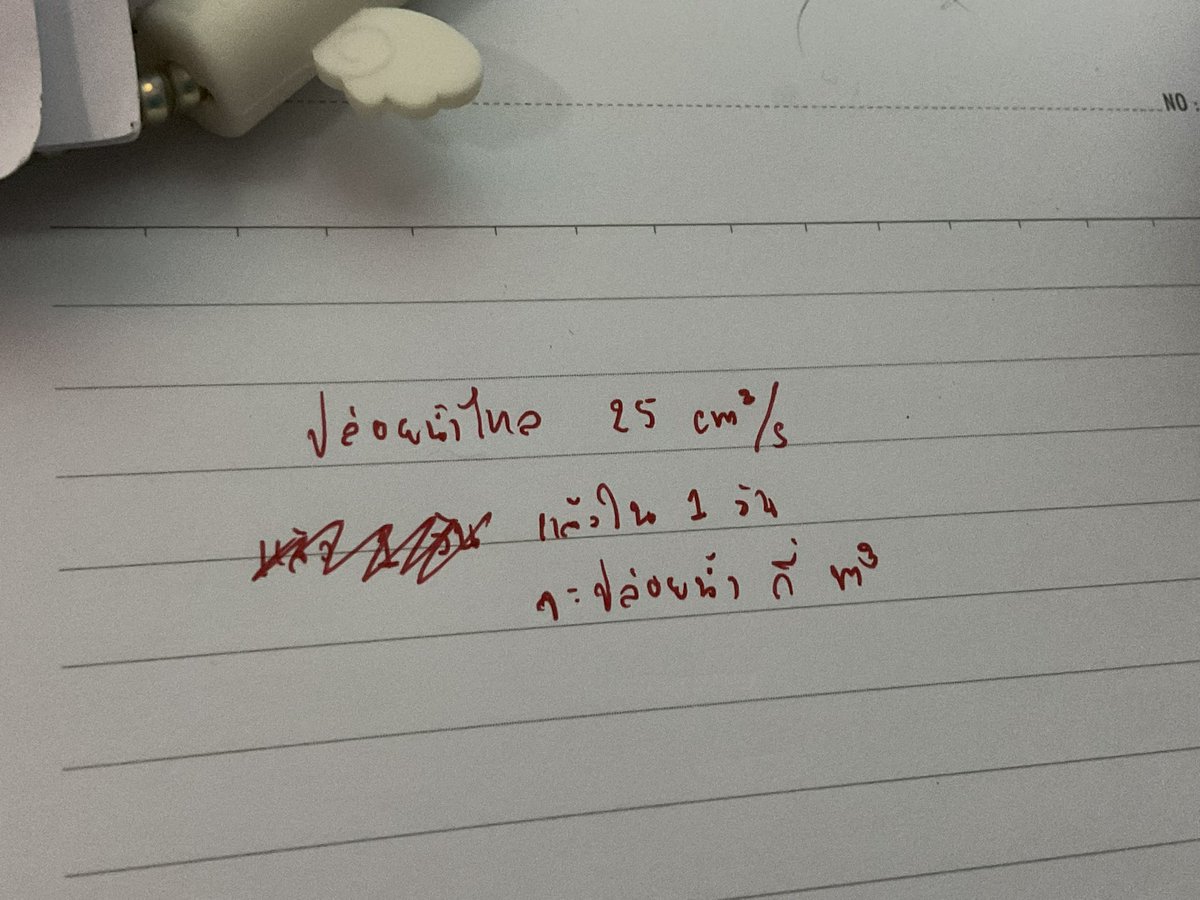 NO :
ปล่อยน้ำไหล 25 cm³/s
แล้วใน 1 วัน
จะปล่อยน้ำ กี่ m³